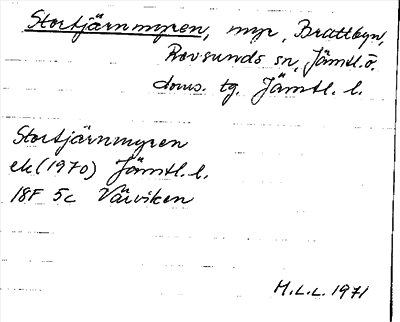 Stortjärnmyren, myr, Brattbyn,
Rossunds sn, Jämtl. ö.
doms. tg. Jämtl. l.
Stortjärnmyren
ek (1970) Jämtl. l.
18F 5c Vårviken
M.L.L. 1971